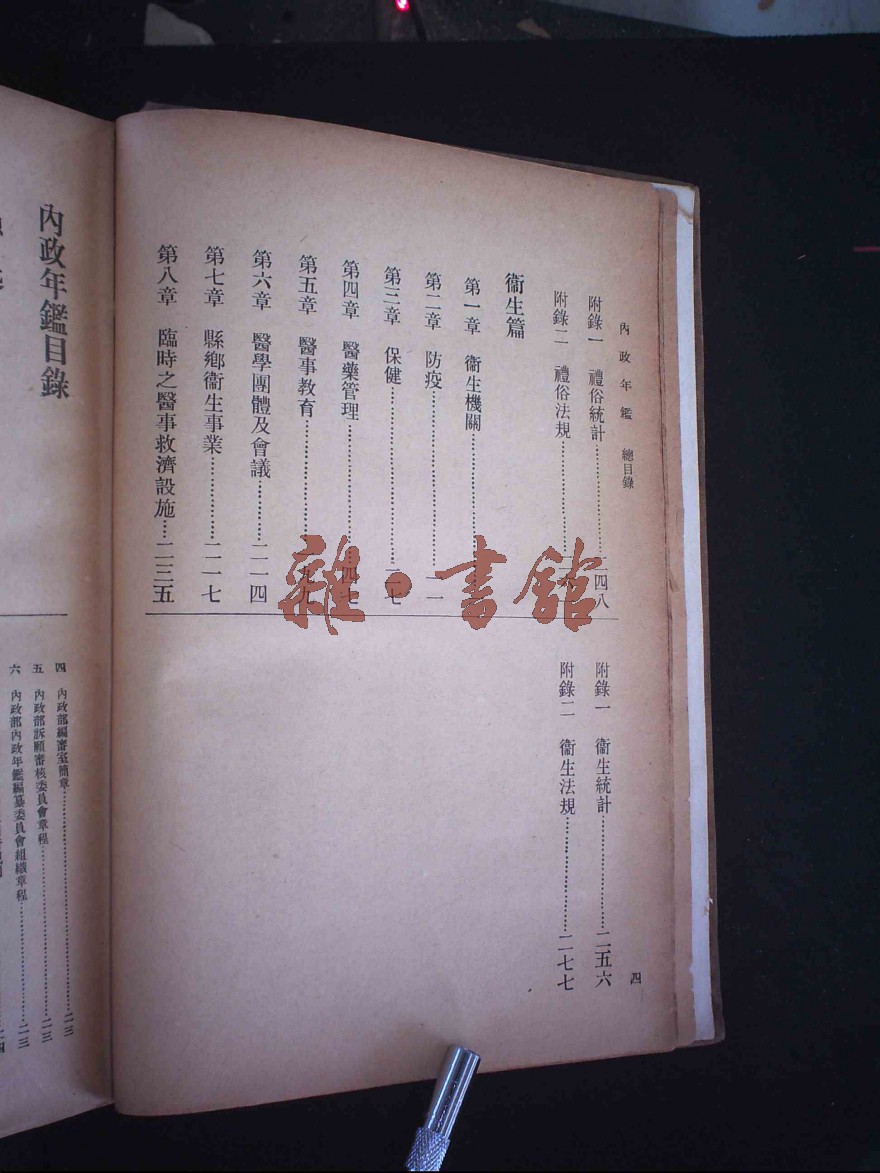 內政年鑑 總目錄
附錄一 禮俗統計…………四八
附錄二 禮俗法規…………
衞生篇
第一章 衞生機關…………
第二章 防疫…………一一
第三章 保健…………二七
第四章 醫藥管理…………四七
第五章 醫事教育…………九九
第六章 醫學團體及會議…………二一四
第七章 縣鄉衞生事業…………二一七
第八章 臨時之醫事救濟設施…二三五
附錄一 衞生統計…………二五六
附錄二 衞生法規…………二七七
四
雜·書館
內政年鑑目錄
四 內政部編審室簡章…………二三
五 內政部訴願審核委員會章程…………二三
六 內政部內政年鑑編纂委員會組織章程…………二三